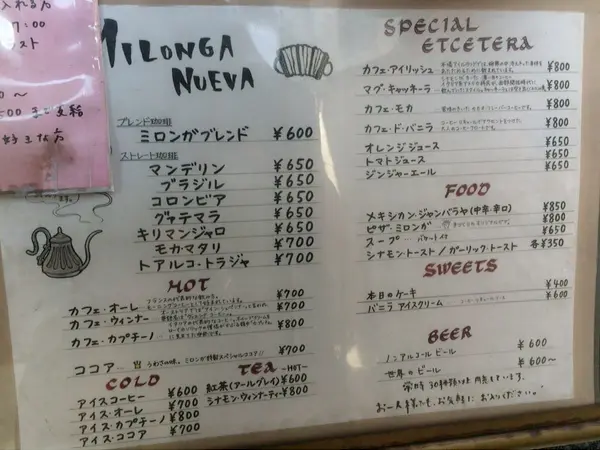 入れる方
7:00
スト
〜
500 まで支給
好きな方
です。
MILONGA
NUEVA
ブレンド珈琲
ミロンガブレンド ¥600
ストレート珈琲
マンデリン ¥650
ブラジル ¥650
コロンビア ¥650
グァテマラ ¥650
キリマンジャロ ¥650
モカ・マタリ ¥700
トアルコ・トラジャ ¥700
HOT
カフェ・オーレ ¥700
カフェ・ウィンナー ¥700
カフェ・カプチーノ ¥800
ココア … うわさの味。ミロンガ特製スペシャルココア!! ¥700
COLD
アイスコーヒー ¥600
アイス・オーレ ¥700
アイス・カプチーノ ¥800
アイス・ココア ¥700
TEA
-HOT-
紅茶(アールグレイ) ¥600
シナモン・ウィンナーティー ¥800
SPECIAL
ETCETERA
カフェ・アイリッシュ ¥800
マグ・キャッキーラ ¥800
カフェ・モカ ¥800
カフェ・ド・バニラ ¥800
オレンジジュース ¥650
トマトジュース ¥650
ジンジャーエール ¥650
FOOD
メキシカン・ジャンバラヤ(中辛・辛口) ¥850
ピザ・ミロンガ ¥800
スープ … バケット付 ¥650
シナモントースト/ガーリック・トースト 各¥350
SWEETS
本日のケーキ ¥400
バニラ アイスクリーム ¥600
BEER
ノンアルコールビール ¥600
世界のビール ¥600〜
常時30種類以上用意しています。
お一人様でも、お気軽にお入りください。